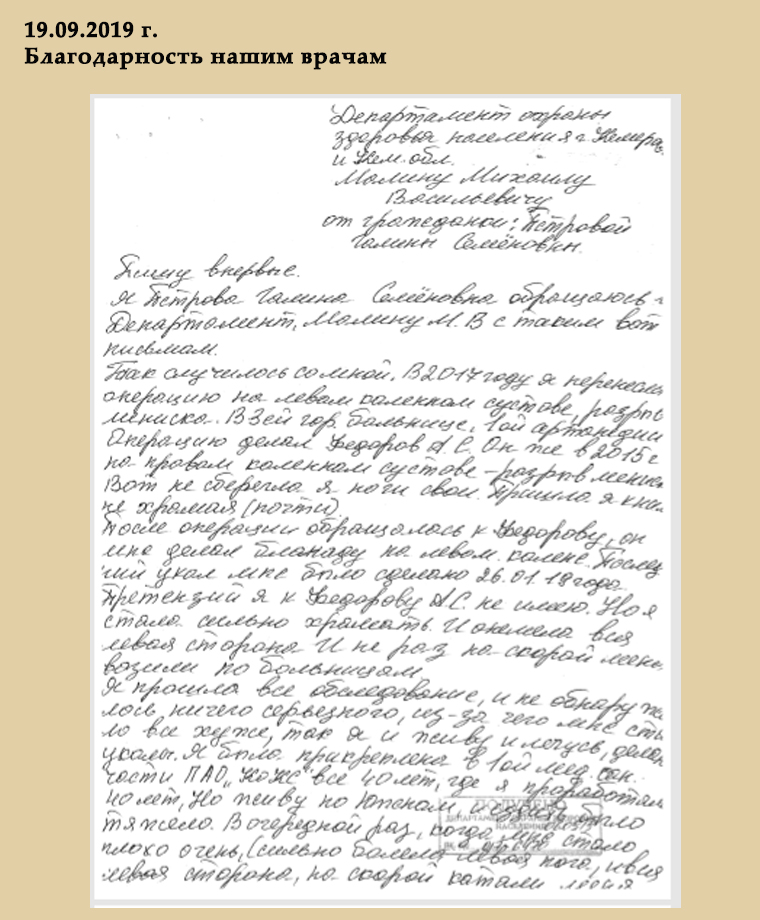 19.09.2019 г.
Благодарность нашим врачам
Департамент охраны
здоровья населения г. Кемера
и Кем. обл.
Малину Михаилу
Васильевичу
от гражданки: Петровой
Галины Семёновны.
Пишу впервые.
Я Петрова Галина Семёновна обращаюсь
Департамент, Малину М. В с таким вот
письмам.
Так случилось со мной. В 2017 году я перенесла
операцию на левом коленном суставе, разры
мениска. В 3ей гор. больнице, 1ой
Операцию делал Федоров А. С. Он же в 2015 г
на правом коленном суставе – разрыв мениск
Вот не сберегла я ноги свои. Пришла я к ни
не храмая (почти).
После операции обращалась к Федорову, он
мне делал бланаду на левом колене. Послед
ний укал мне было сделано 26.01 18 года.
Претензий я к Федорову А. С. не имею. Но я
стала сильно храмать. И онемела вся
левая сторона И не раз на скорой меня
возили по больницам
Я прошла все обследование, и не обнаруже
лось ничего серьезного, из-за чего мне ста
ло все хуже, так я и живу и лечусь, делаю
укалы. Я была прикреплена в 1ой мед. сан.
части ПАО „КОКС" все 40 лет, где я проработала
40 лет, Но живу на Южном, и было
тяжело. В очередной раз, когда мне стало
плохо очень, (сильно болела левая нога, и вся
левая сторона, на скорой катали меня
ПОЛУЧЕНО